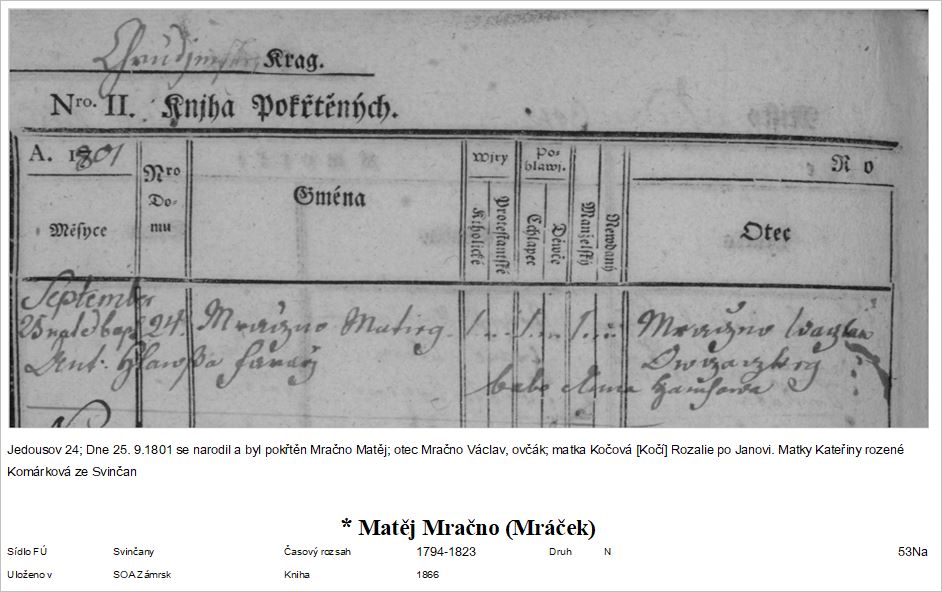 Chrudimský Krag.
Nro. II. Knjha Pokřtěných.
A. 1801
Měsyce
Nro Domu
Gména
Wjry
Katholické
Protestantské
Pohlawj.
Chlapec
Děwče
Manželský
Newdaný
R o
Otec
September
25 nate bap 24. Mračno Matieg. 1. 1. 1. Mračno Waczlaw
Ant: Hlawsa farář Owczaczkeg
babo Anna
Jedousov 24; Dne 25. 9.1801 se narodil a byl pokřtěn Mračno Matěj; otec Mračno Václav, ovčák; matka Kočová [Kočí] Rozalie po Janovi. Matky Kateřiny rozené
Komárková ze Svinčan
* Matěj Mračno (Mráček)
Sídlo FÚ Svinčany Časový rozsah 1794-1823 Druh N 53Na
Uloženo v SOA Zámrsk Kniha 1866